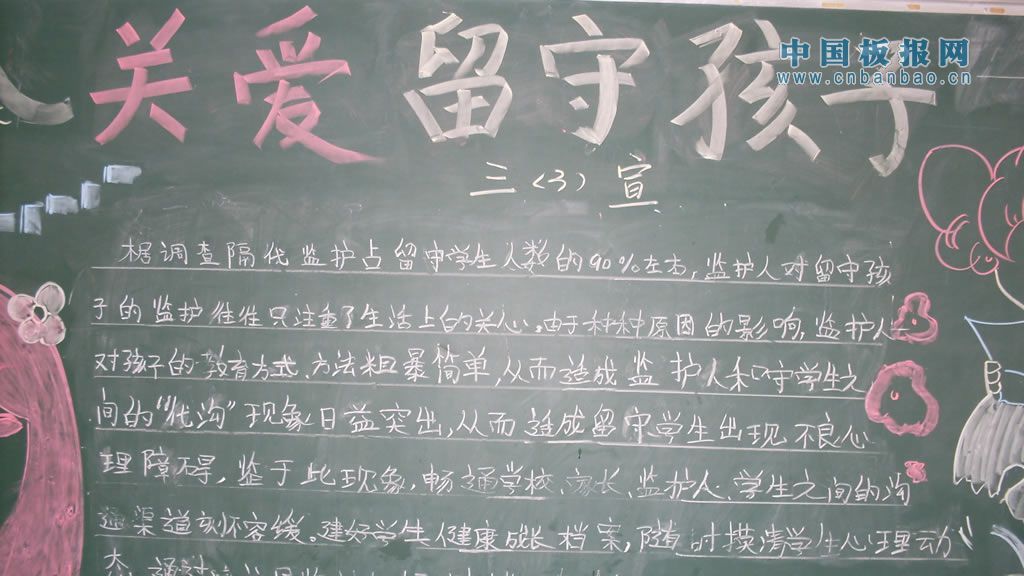 关爱留守孩子
中国板报网
www.cnbanbao.cn
三(3)宣
根调查隔代监护占留守学生人数的90%左右,监护人对留守孩
子的监护往往只注重了生活上的关心。由于种种原因的影响,监护人
对孩子的教育方式、方法粗暴简单,从而造成监护人和守学生之
间的"代沟"现象日益突出,从而造成留守学生出现不良心
理障碍,鉴于此现象,畅通学校、家长、监护人、学生之间的沟
通渠道刻怀容缓。建好学生健康成长档案,随时摸清学生心理动
态,通过